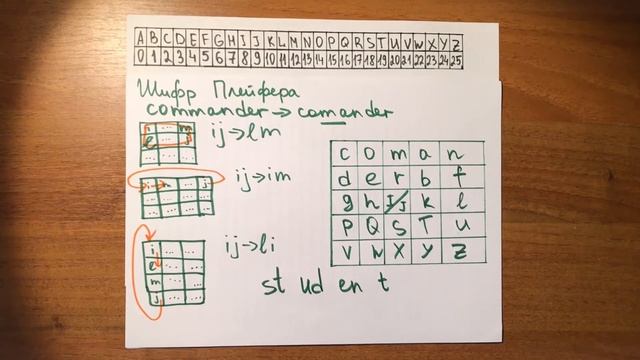 A B C D E F G H I J K L M N O P Q R S T U V W X Y Z
0 1 2 3 4 5 6 7 8 9 10 11 12 13 14 15 16 17 18 19 20 21 22 23 24 25
Шифр Плейфера
commander → comander
i ... m
l ... j
... ... ...
ij → lm
i m ... j
... ... ... ...
... ... ... ...
ij → im
i ... ...
l ... ...
m ... ...
j ... ...
ij → li
c o m a n
d e r b f
g h I/J k l
P Q S T U
V W X Y Z
st ud en t